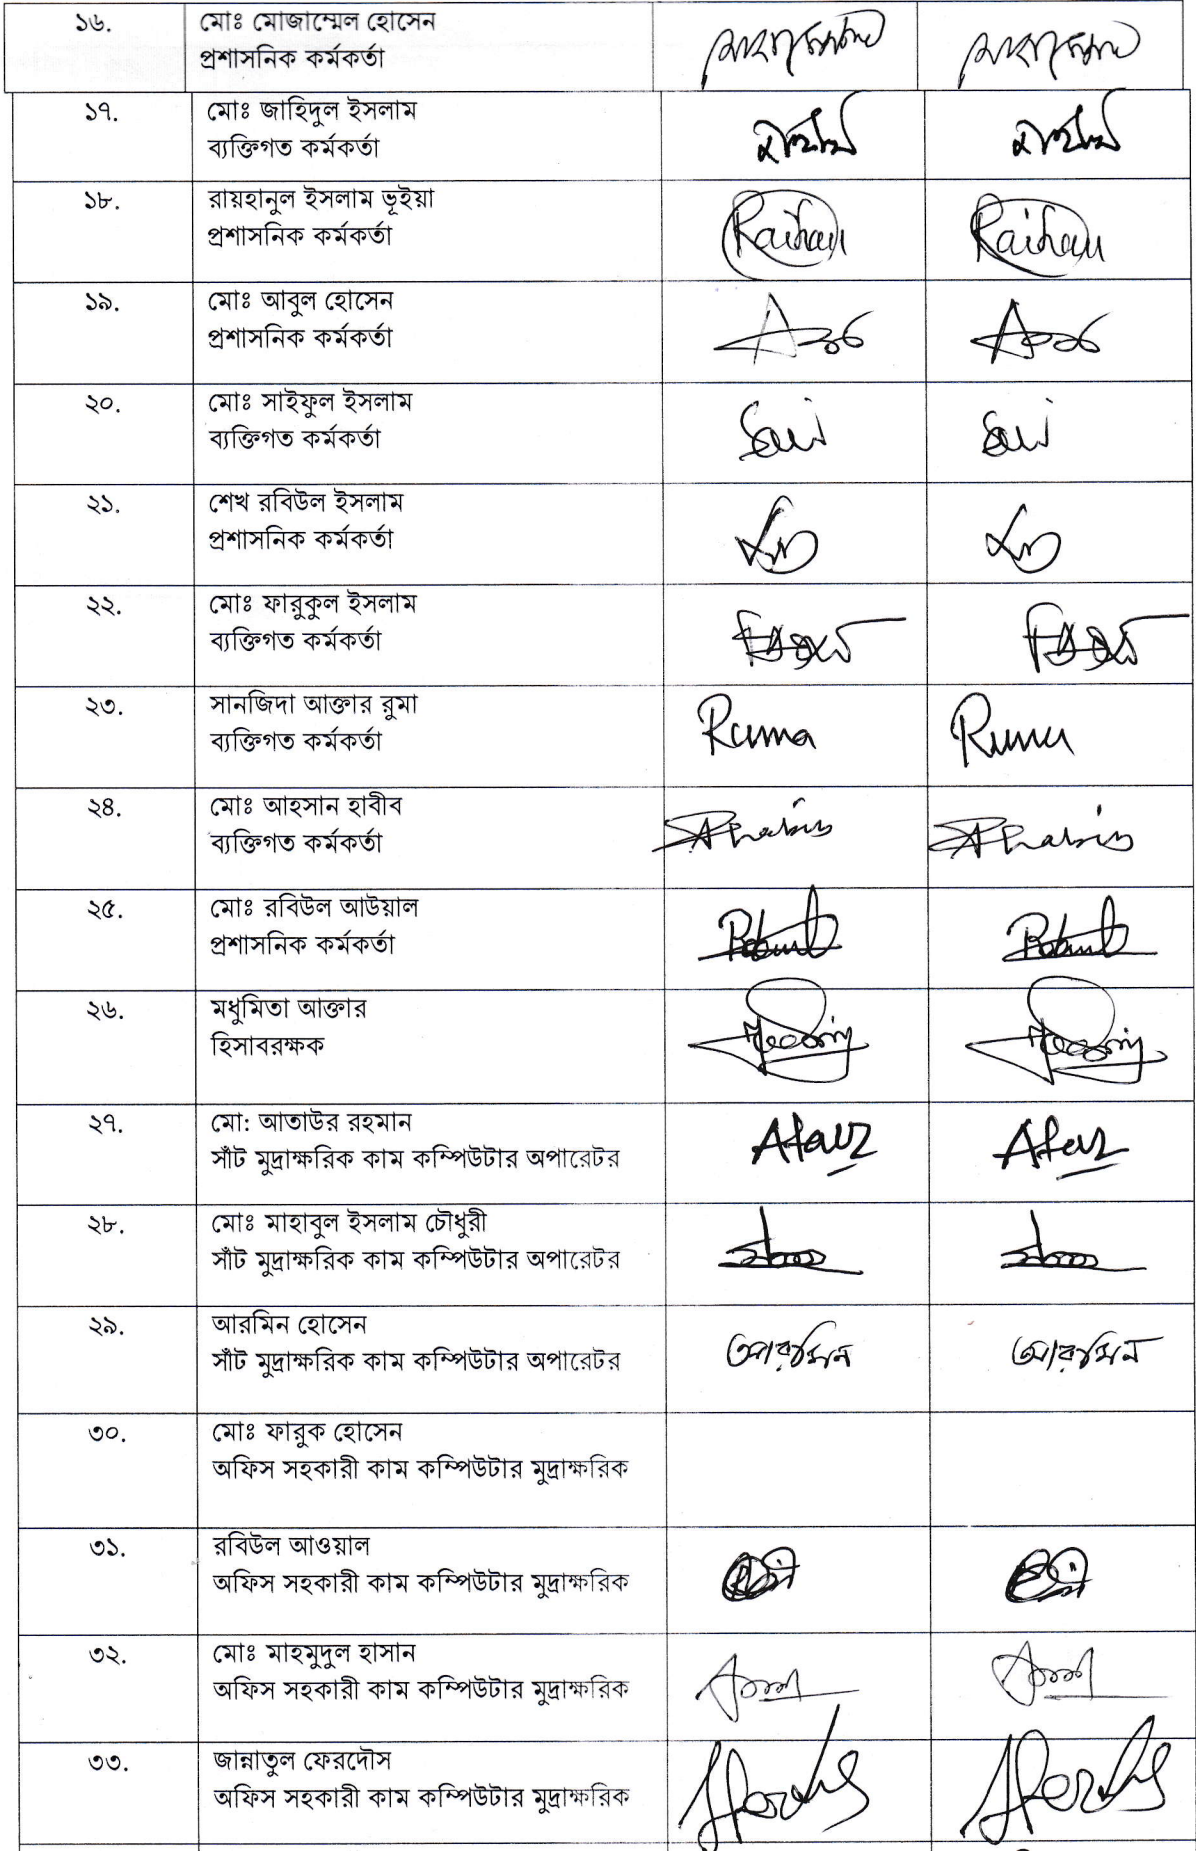 ১৬. মোঃ মোজাম্মেল হোসেন
প্রশাসনিক কর্মকর্তা
১৭. মোঃ জাহিদুল ইসলাম
ব্যক্তিগত কর্মকর্তা
১৮. রায়হানুল ইসলাম ভূইয়া
প্রশাসনিক কর্মকর্তা Raihan Raihan
১৯. মোঃ আবুল হোসেন
প্রশাসনিক কর্মকর্তা
২০. মোঃ সাইফুল ইসলাম
ব্যক্তিগত কর্মকর্তা
২১. শেখ রবিউল ইসলাম
প্রশাসনিক কর্মকর্তা
২২. মোঃ ফারুকুল ইসলাম
ব্যক্তিগত কর্মকর্তা
২৩. সানজিদা আক্তার রুমা
ব্যক্তিগত কর্মকর্তা Ruma Ruma
২৪. মোঃ আহসান হাবীব
ব্যক্তিগত কর্মকর্তা
২৫. মোঃ রবিউল আউয়াল
প্রশাসনিক কর্মকর্তা
২৬. মধুমিতা আক্তার
হিসাবরক্ষক
২৭. মো: আতাউর রহমান
সাঁট মুদ্রাক্ষরিক কাম কম্পিউটার অপারেটর
২৮. মোঃ মাহাবুল ইসলাম চৌধুরী
সাঁট মুদ্রাক্ষরিক কাম কম্পিউটার অপারেটর
২৯. আরমিন হোসেন
সাঁট মুদ্রাক্ষরিক কাম কম্পিউটার অপারেটর আরমিন আরমিন
৩০. মোঃ ফারুক হোসেন
অফিস সহকারী কাম কম্পিউটার মুদ্রাক্ষরিক
৩১. রবিউল আওয়াল
অফিস সহকারী কাম কম্পিউটার মুদ্রাক্ষরিক
৩২. মোঃ মাহমুদুল হাসান
অফিস সহকারী কাম কম্পিউটার মুদ্রাক্ষরিক
৩৩. জান্নাতুল ফেরদৌস
অফিস সহকারী কাম কম্পিউটার মুদ্রাক্ষরিক